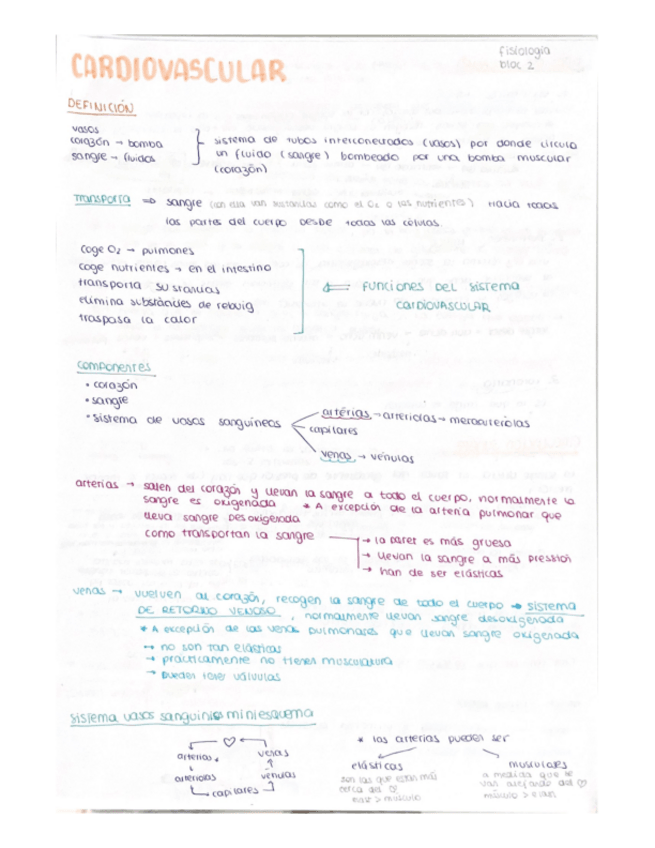 fisiología
bloc 2
CARDIOVASCULAR
DEFINICIÓN
vasos
corazón → bomba
sangre → fluidos
sistema de tubos interconeurados (vasos) por donde circula
un fluido (sangre) bombeado por una bomba muscular
(corazón)
Transporta ⇒ sangre (con ella van sustancias como el O₂ o los nutrientes) hacia todas
las partes del cuerpo DESDE todas las células.
coge O₂ → pulmones
coge nutrientes → en el intestino
transporta sustancias
elimina substàncies de rebuig
traspasa la calor
⇐ FUNCIONES DEL SISTEMA
CARDIOVASCULAR
componentes
• corazón
• sangre
• sistema de vasos sanguíneos
artérias → arteriolas → metaarteriolas
capilares
venas → vénulas
arterias → salen del corazón y llevan la sangre a todo el cuerpo, normalmente la
sangre es oxigenada * A excepción de la arteria pulmonar que
lleva sangre desoxigenada
como transportan la sangre
→ la paret es más gruesa
→ llevan la sangre a más pression
→ han de ser elásticas
venas → vuelven al corazón, recogen la sangre de todo el cuerpo → SISTEMA
DE RETORNO VENOSO, normalmente llevan sangre desoxigenada
* A excepción de las venas pulmonares que llevan sangre oxigenada
→ no son tan elásticas
→ prácticamente no tienen musculatura
→ pueden tener válvulas
sistema vasos sanguinis miniesquema
♡
arterias
venas
arteriolas
vénulas
capilares
* las arterias pueden ser
elásticas
son las que estan más
cerca del ♡
elast > músculo
musculares
a medida que se
van alejando del ♡
músculo > elast